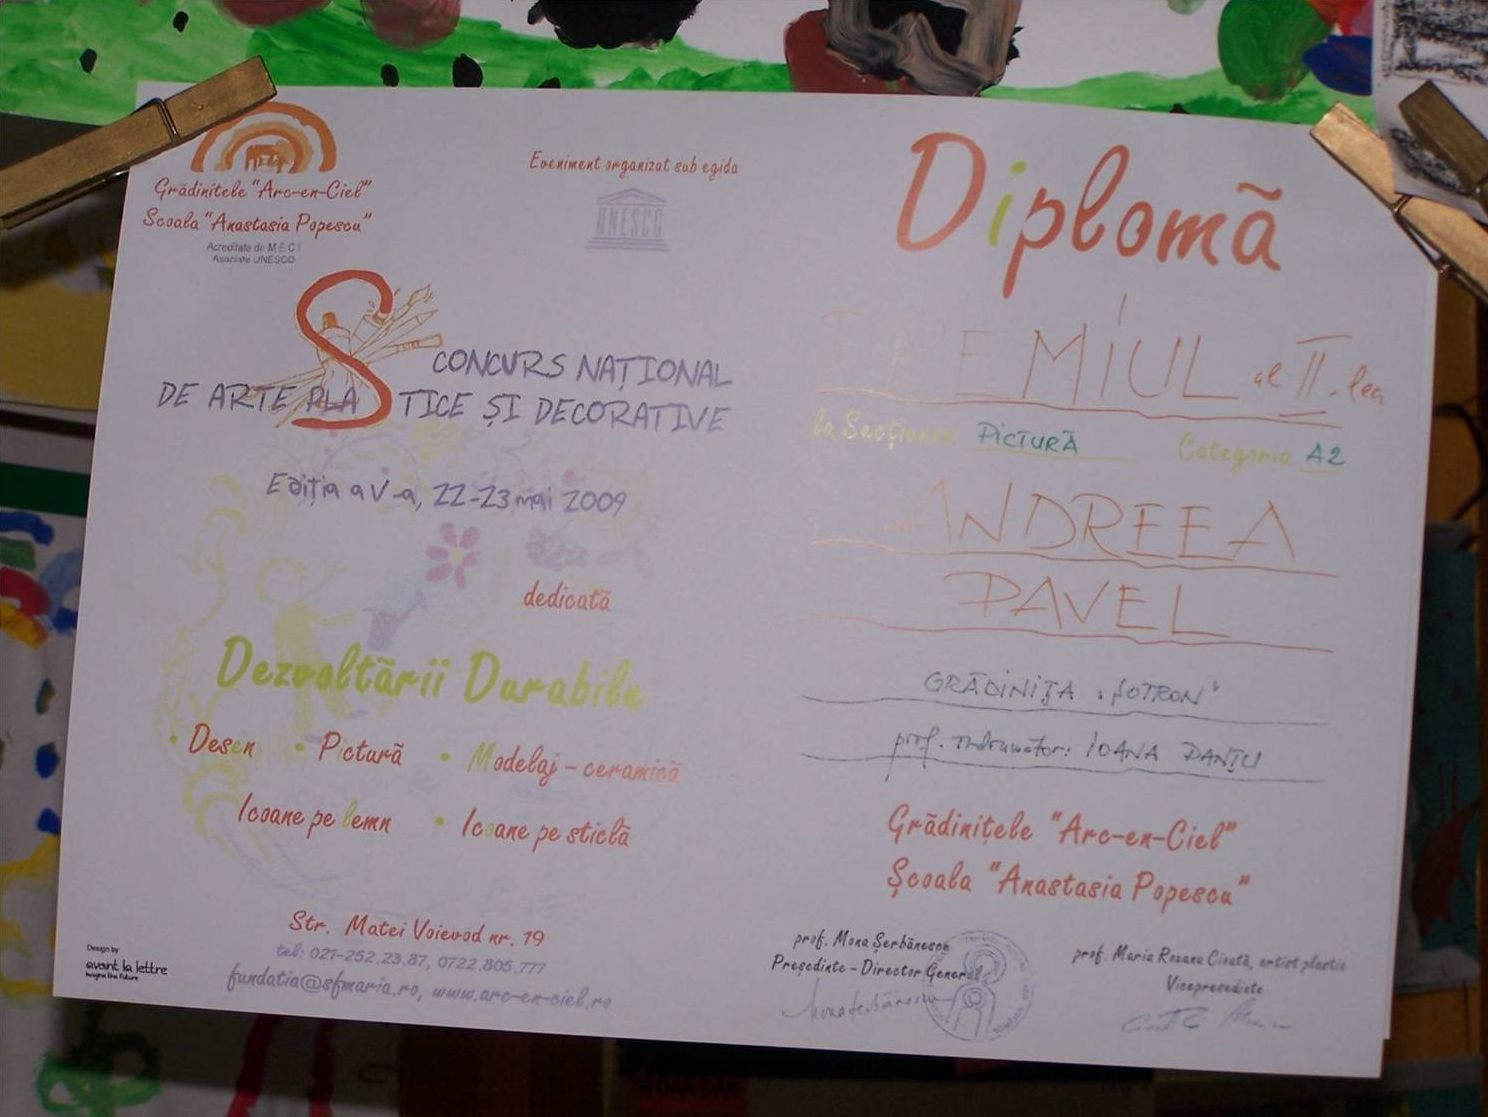 Grădinițele "Arc-en-Ciel"
Școala "Anastasia Popescu"
Acreditate de M.E.C.I
Asociate UNESCO
Eveniment organizat sub egida
UNESCO
CONCURS NAȚIONAL
DE ARTE PLASTICE ȘI DECORATIVE
Ediția a V-a, 22-23 mai 2009
dedicată
Dezvoltării Durabile
• Desen • Pictură • Modelaj - ceramică
Icoane pe lemn • Icoane pe sticlă
Str. Matei Voievod nr. 19
tel: 021-252.23.87, 0722.805.777
fundatia@sfmaria.ro, www.arc-en-ciel.ro
Design by
avant la lettre
imagine the future
Diplomă
PREMIUL al II-lea
la Secțiunea PICTURĂ Categoria A2
ANDREEA
PAVEL
GRĂDINIȚA "ȘOTRON"
prof. îndrumător: IOANA DANȚU
Grădinițele "Arc-en-Ciel"
Școala "Anastasia Popescu"
prof. Mona Șerbănescu
Președinte - Director General
prof. Maria Roxana Cioată, artist plastic
Vicepreședinte